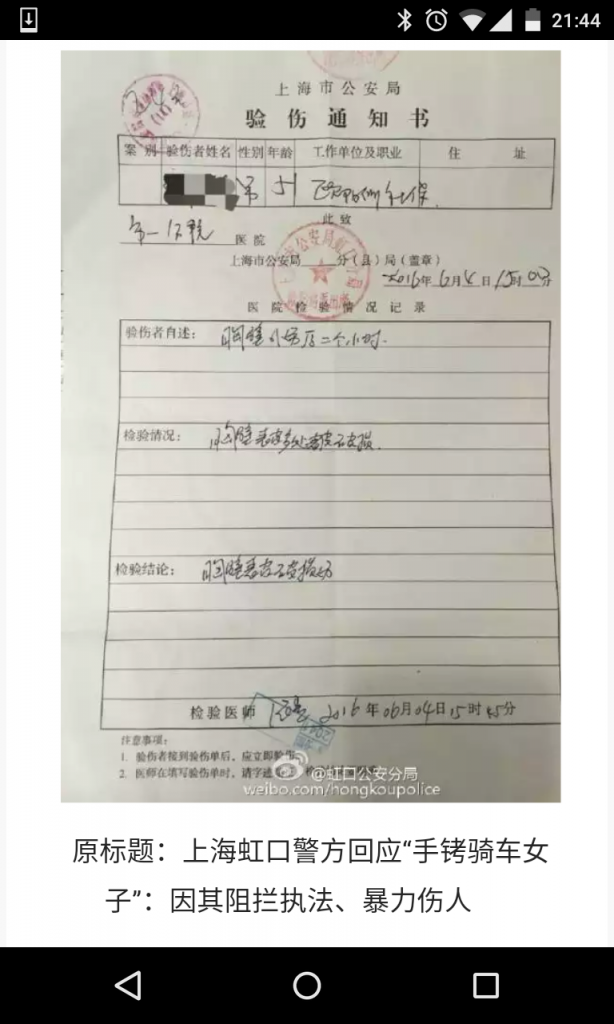 21:44
上海市公安局
验伤通知书
案别 验伤者姓名 性别 年龄 工作单位及职业 住址
此致
第一 医院
上海市公安局 分（县）局（盖章）
2016年6月4日15时00分
医院检验情况记录
验伤者自述：胸壁外伤后二个小时.
检验情况：胸壁
检验结论：胸壁
检验医师 2016年06月04日15时45分
注意事项：
1. 验伤者接到验伤单后，应立即验伤
2. 医师在填写验伤单时，请字迹
@虹口公安分局
weibo.com/hongkoupolice
原标题：上海虹口警方回应“手铐骑车女
子”：因其阻拦执法、暴力伤人